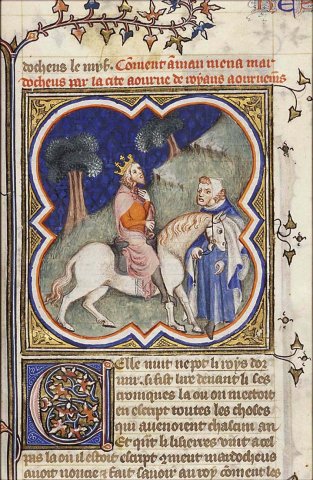 docheus le iuyf. Coment aman mena mar
docheus par la cite aourne de royaus aournemens
Celle nuit ne pot li roys dor
mir. si fait lire deuant li les
croniques la ou on mectoit
en escript toutes les choses
qui auenoient chascun an.
Et quant li liserres vint a cel
pas la ou il estoit escript coment mardocheus
auoit noncie et fait sauoir au roy coment les